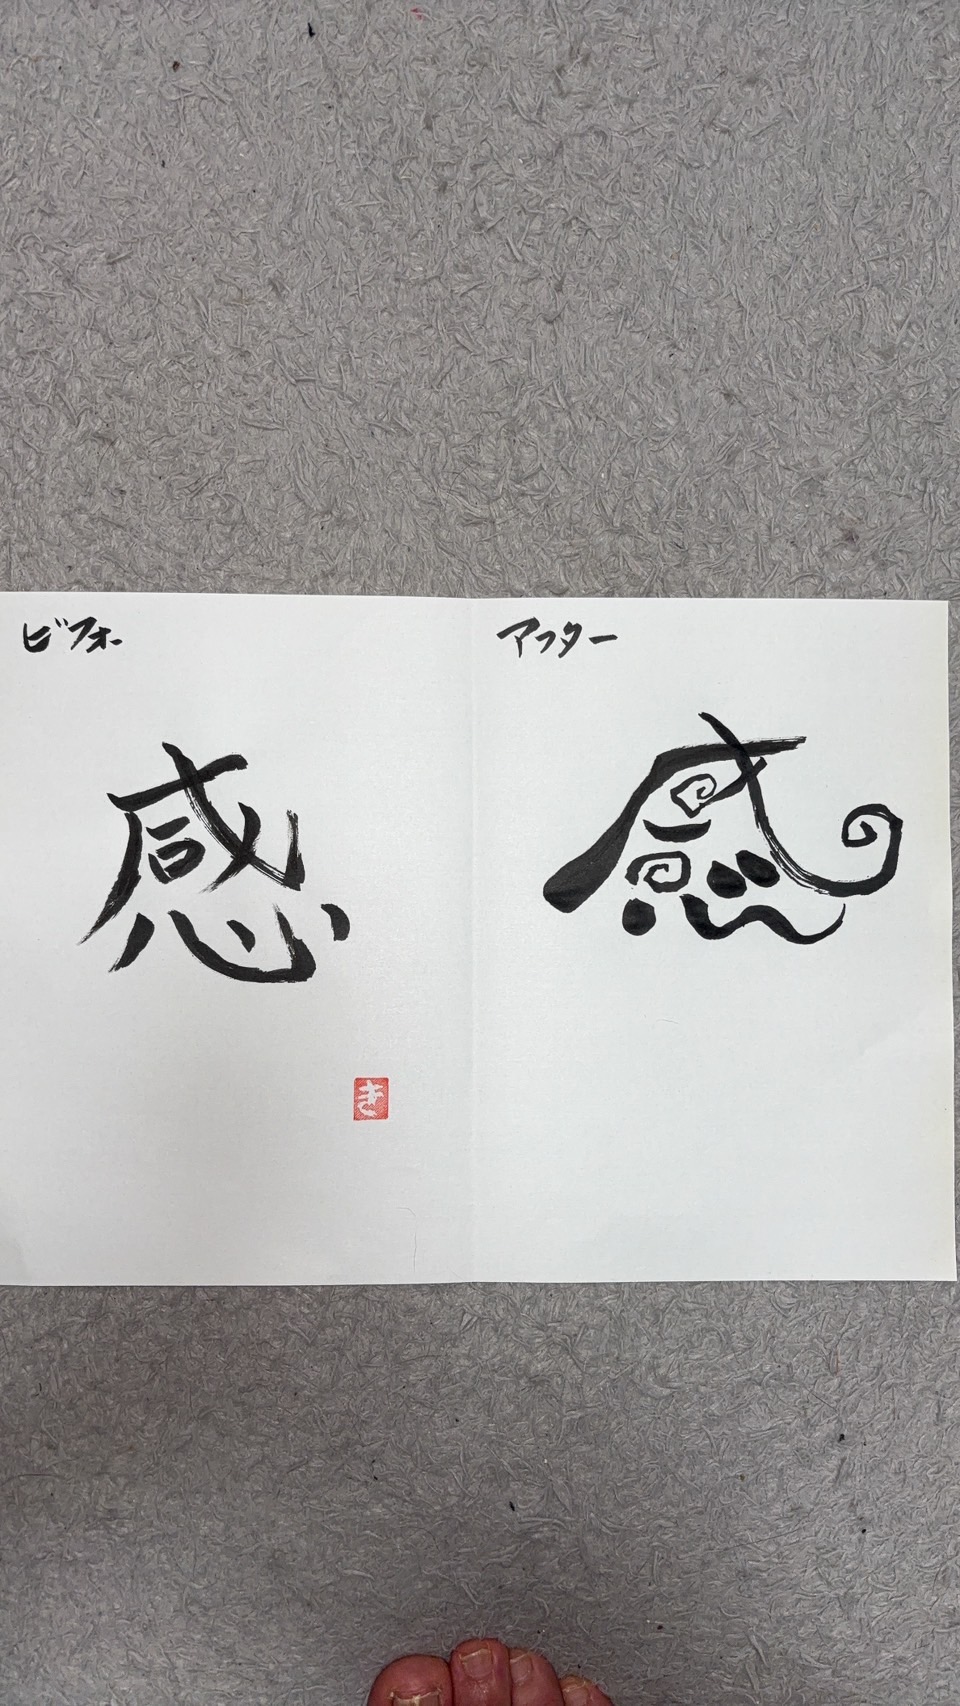 ビフォー
感
き
アフター
感